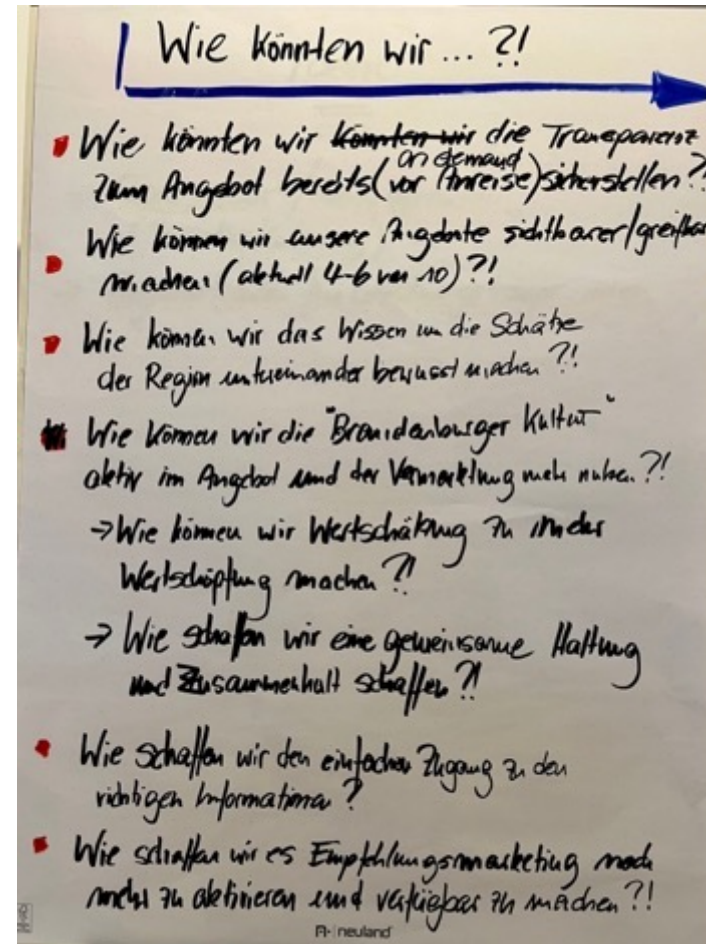 Wie könnten wir ... ?!
Wie könnten wir könnten wir die Transparenz
on demand
zum Angebot bereits (vor Anreise) sicherstellen?!
Wie können wir unsere Angebote sichtbarer/greifbar
machen (aktuell 4-6 von 10)?!
Wie können wir das Wissen um die Schätze
der Region untereinander bewusst machen?!
Wie können wir die "Brandenburger Kultur"
aktiv im Angebot und der Vermarktung mehr nutzen?!
→ Wie können wir Wertschätzung zu
Wertschöpfung machen?!
→ Wie schaffen wir eine gemeinsame Haltung
und Zusammenhalt schaffen?!
Wie schaffen wir den einfachen Zugang zu den
richtigen Informationen?
Wie schaffen wir es Empfehlungsmarketing noch
mehr zu aktivieren und verfügbar zu machen?!
neuland